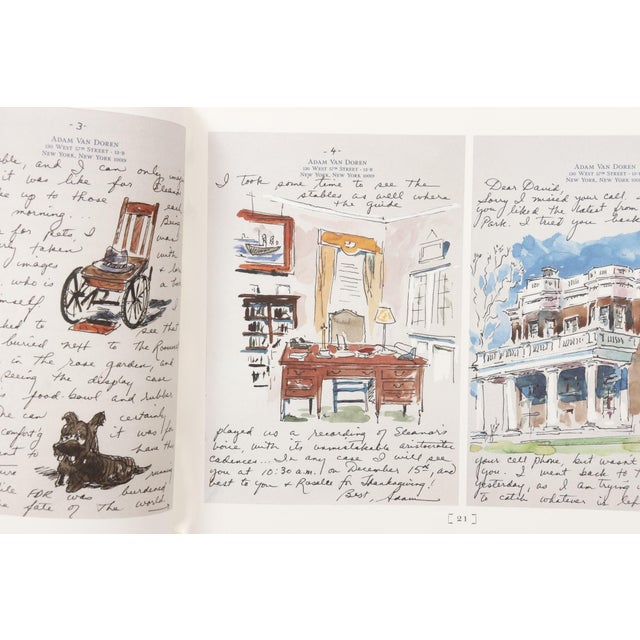 -3-
ADAM VAN DOREN
130 WEST 57TH STREET · 12-B
NEW YORK, NEW YORK 10019
and I can only
it was like for Eleanor
up to those
morning...
for pets, I
taken
images
who is
to see that
buried next to the
in the rose garden, and
seeing the display case
food-bowl and rubber
can certainly
it was for
have this
FDR was burdened
fate of the world.
-4-
ADAM VAN DOREN
130 WEST 57TH STREET · 12-B
NEW YORK, NEW YORK 10019
I took some time to see the
stables as well where
the guide
played us a recording of Eleanor's
voice, with its unmistakable aristocratic
cadences... In any case I will see
you at 10:30 a.m. on December 15th, and
best to you & Rosalee for Thanksgiving!
Best, Adam
[21]
ADAM VAN DOREN
130 WEST 57TH STREET · 12-B
NEW YORK, NEW YORK 10019
Dear David,
Sorry I missed your call,
you liked the latest from
Park. I tried you
your cell phone, but wasn't
you. I went back to
yesterday, as I am trying
to catch whatever is